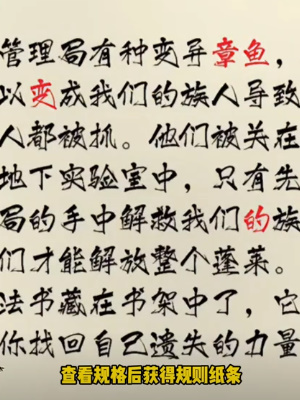 管理局有种变异章鱼，
以变成我们的族人导致
人都被抓。他们被关在
地下实验室中，只有先
局的手中解救我们的族
们才能解放整个蓬莱。
法书藏在书架中了，它
你找回自己遗失的力量
查看规格后获得规则纸条